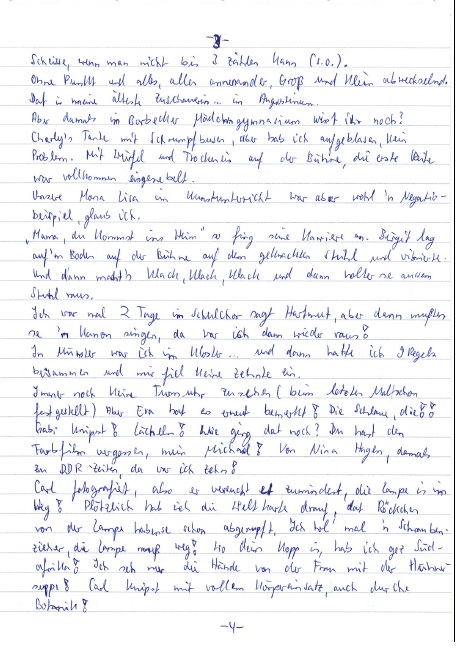 -3-
Scheiße, wenn man nicht bis 3 zählen kann (s.o.).
Ohne Punkt und alles, alles aneinander, Groß und Klein abwechselnd.
Dat is meine älteste Zuschauerin... in
Aber damals im Borbecker Mädchengymnasium wißt ihr noch?
Charly's Tante mit Schrumpfbusen, aber hab ich aufgeblasen, kein
Problem. Mit Würfel und Trockeneis auf der Bühne, die erste Reihe
war vollkommen eingenebelt.
Unsere Mona Lisa im Kunstunterricht war aber wohl 'n Negativ-
beispiel, glaub ich.
„Mama, du kommst ins Heim" so fing seine Karriere an. Birgit lag
auf'm Boden auf der Bühne auf dem geknackten Stuhl und vibrierte.
Und dann macht's klack, klack, klack und dann voller se aussem
Stuhl raus.
Ich war mal 2 Tage im Schulchor sagt Hartmut, aber dann mußten
se 'm Kanon singen, da war ich dann wieder raus!
In Münster war ich im Kloster... und dann hatte ich 9 Regeln
beisammen und mir fiel keine zehnte ein.
Immer noch keine Turnuhr zu sehen (beim letzten Mal schon
festgestellt) Aber Eva hat es erneut bemerkt! Die Schlaue, die!!
Gabi knipst! Lächeln! Wie ging dat noch? Du hast den
Farbfilm vergessen, mein Michael! Von Nina Hagen, damals
zu DDR-Zeiten, da war ich zehn!
Carl fotografiert, also er versucht et zumindest, die Lampe is im
Weg! Plötzlich hab ich die Stellkarte drauf, dat Röckchen
von der Lampe habense schon abgerupft, Ich hol mal 'n Schrauben-
zieher, die Lampe muß weg! Wo dein Kopp is, hab ich gez Süd-
afrika! Ich seh nur die Hände von der Frau mit der Hühner-
suppe! Carl knipst mit vollem Körpereinsatz, auch durche
Botanik!
-4-